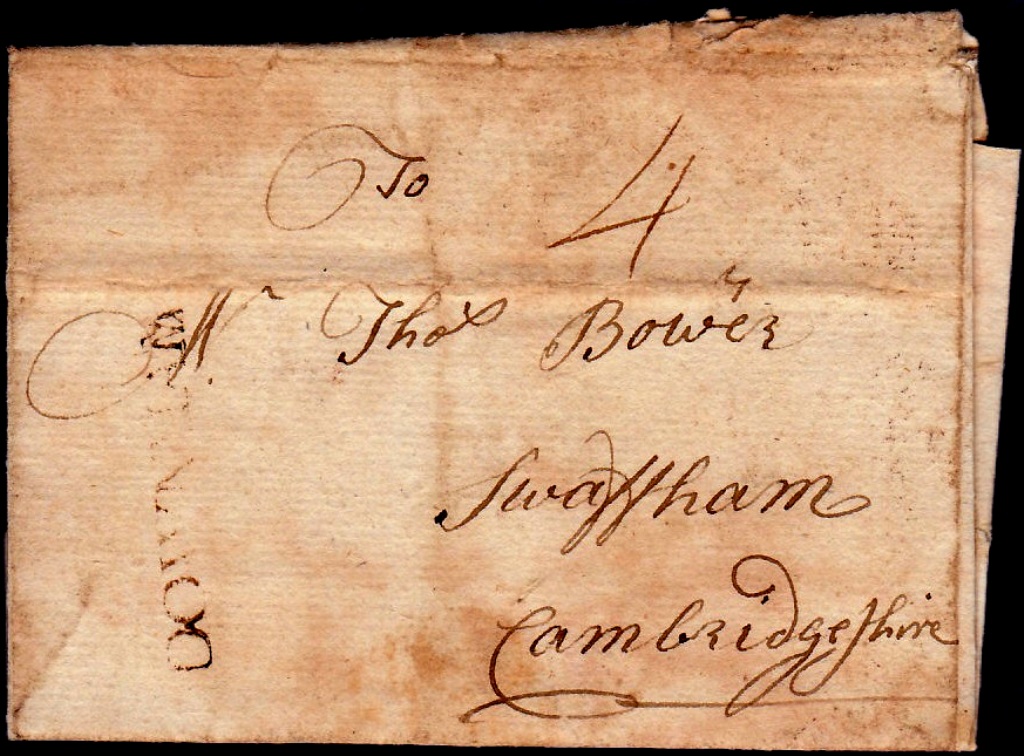 To 4
Mr Thos Bower
Swaffham
Cambridgeshire